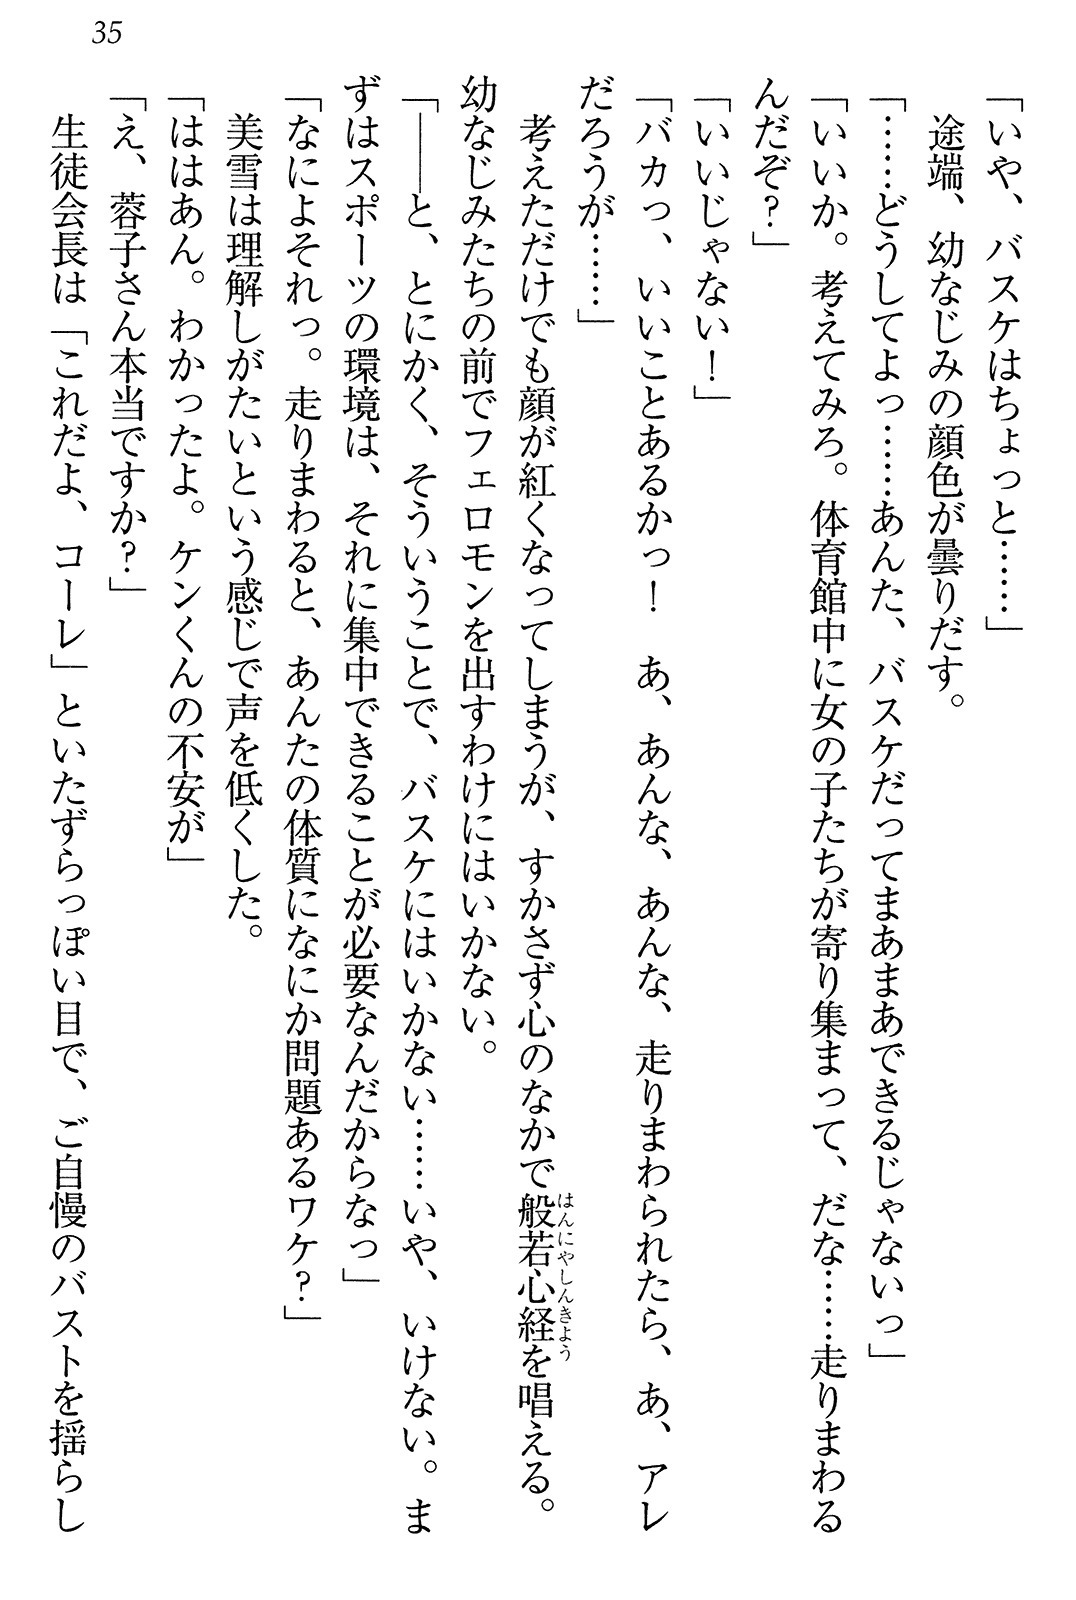 35
「いや、バスケはちょっと……」
途端、幼なじみの顔色が曇りだす。
「……どうしてよっ……あんた、バスケだってまあまあできるじゃないっ」
「いいか。考えてみろ。体育館中に女の子たちが寄り集まって、だな……走りまわる
んだぞ？」
「いいじゃない！」
「バカっ、いいことあるかっ！　あ、あんな、あんな、走りまわられたら、あ、アレ
だろうが……」
考えただけでも顔が紅くなってしまうが、すかさず心のなかで般若心経を唱える。
はんにゃしんきょう
幼なじみたちの前でフェロモンを出すわけにはいかない。
「――と、とにかく、そういうことで、バスケにはいかない……いや、いけない。ま
ずはスポーツの環境は、それに集中できることが必要なんだからなっ」
「なによそれっ。走りまわると、あんたの体質になにか問題あるワケ？」
美雪は理解しがたいという感じで声を低くした。
「ははあん。わかったよ。ケンくんの不安が」
「え、蓉子さん本当ですか？」
生徒会長は「これだよ、コーレ」といたずらっぽい目で、ご自慢のバストを揺らし